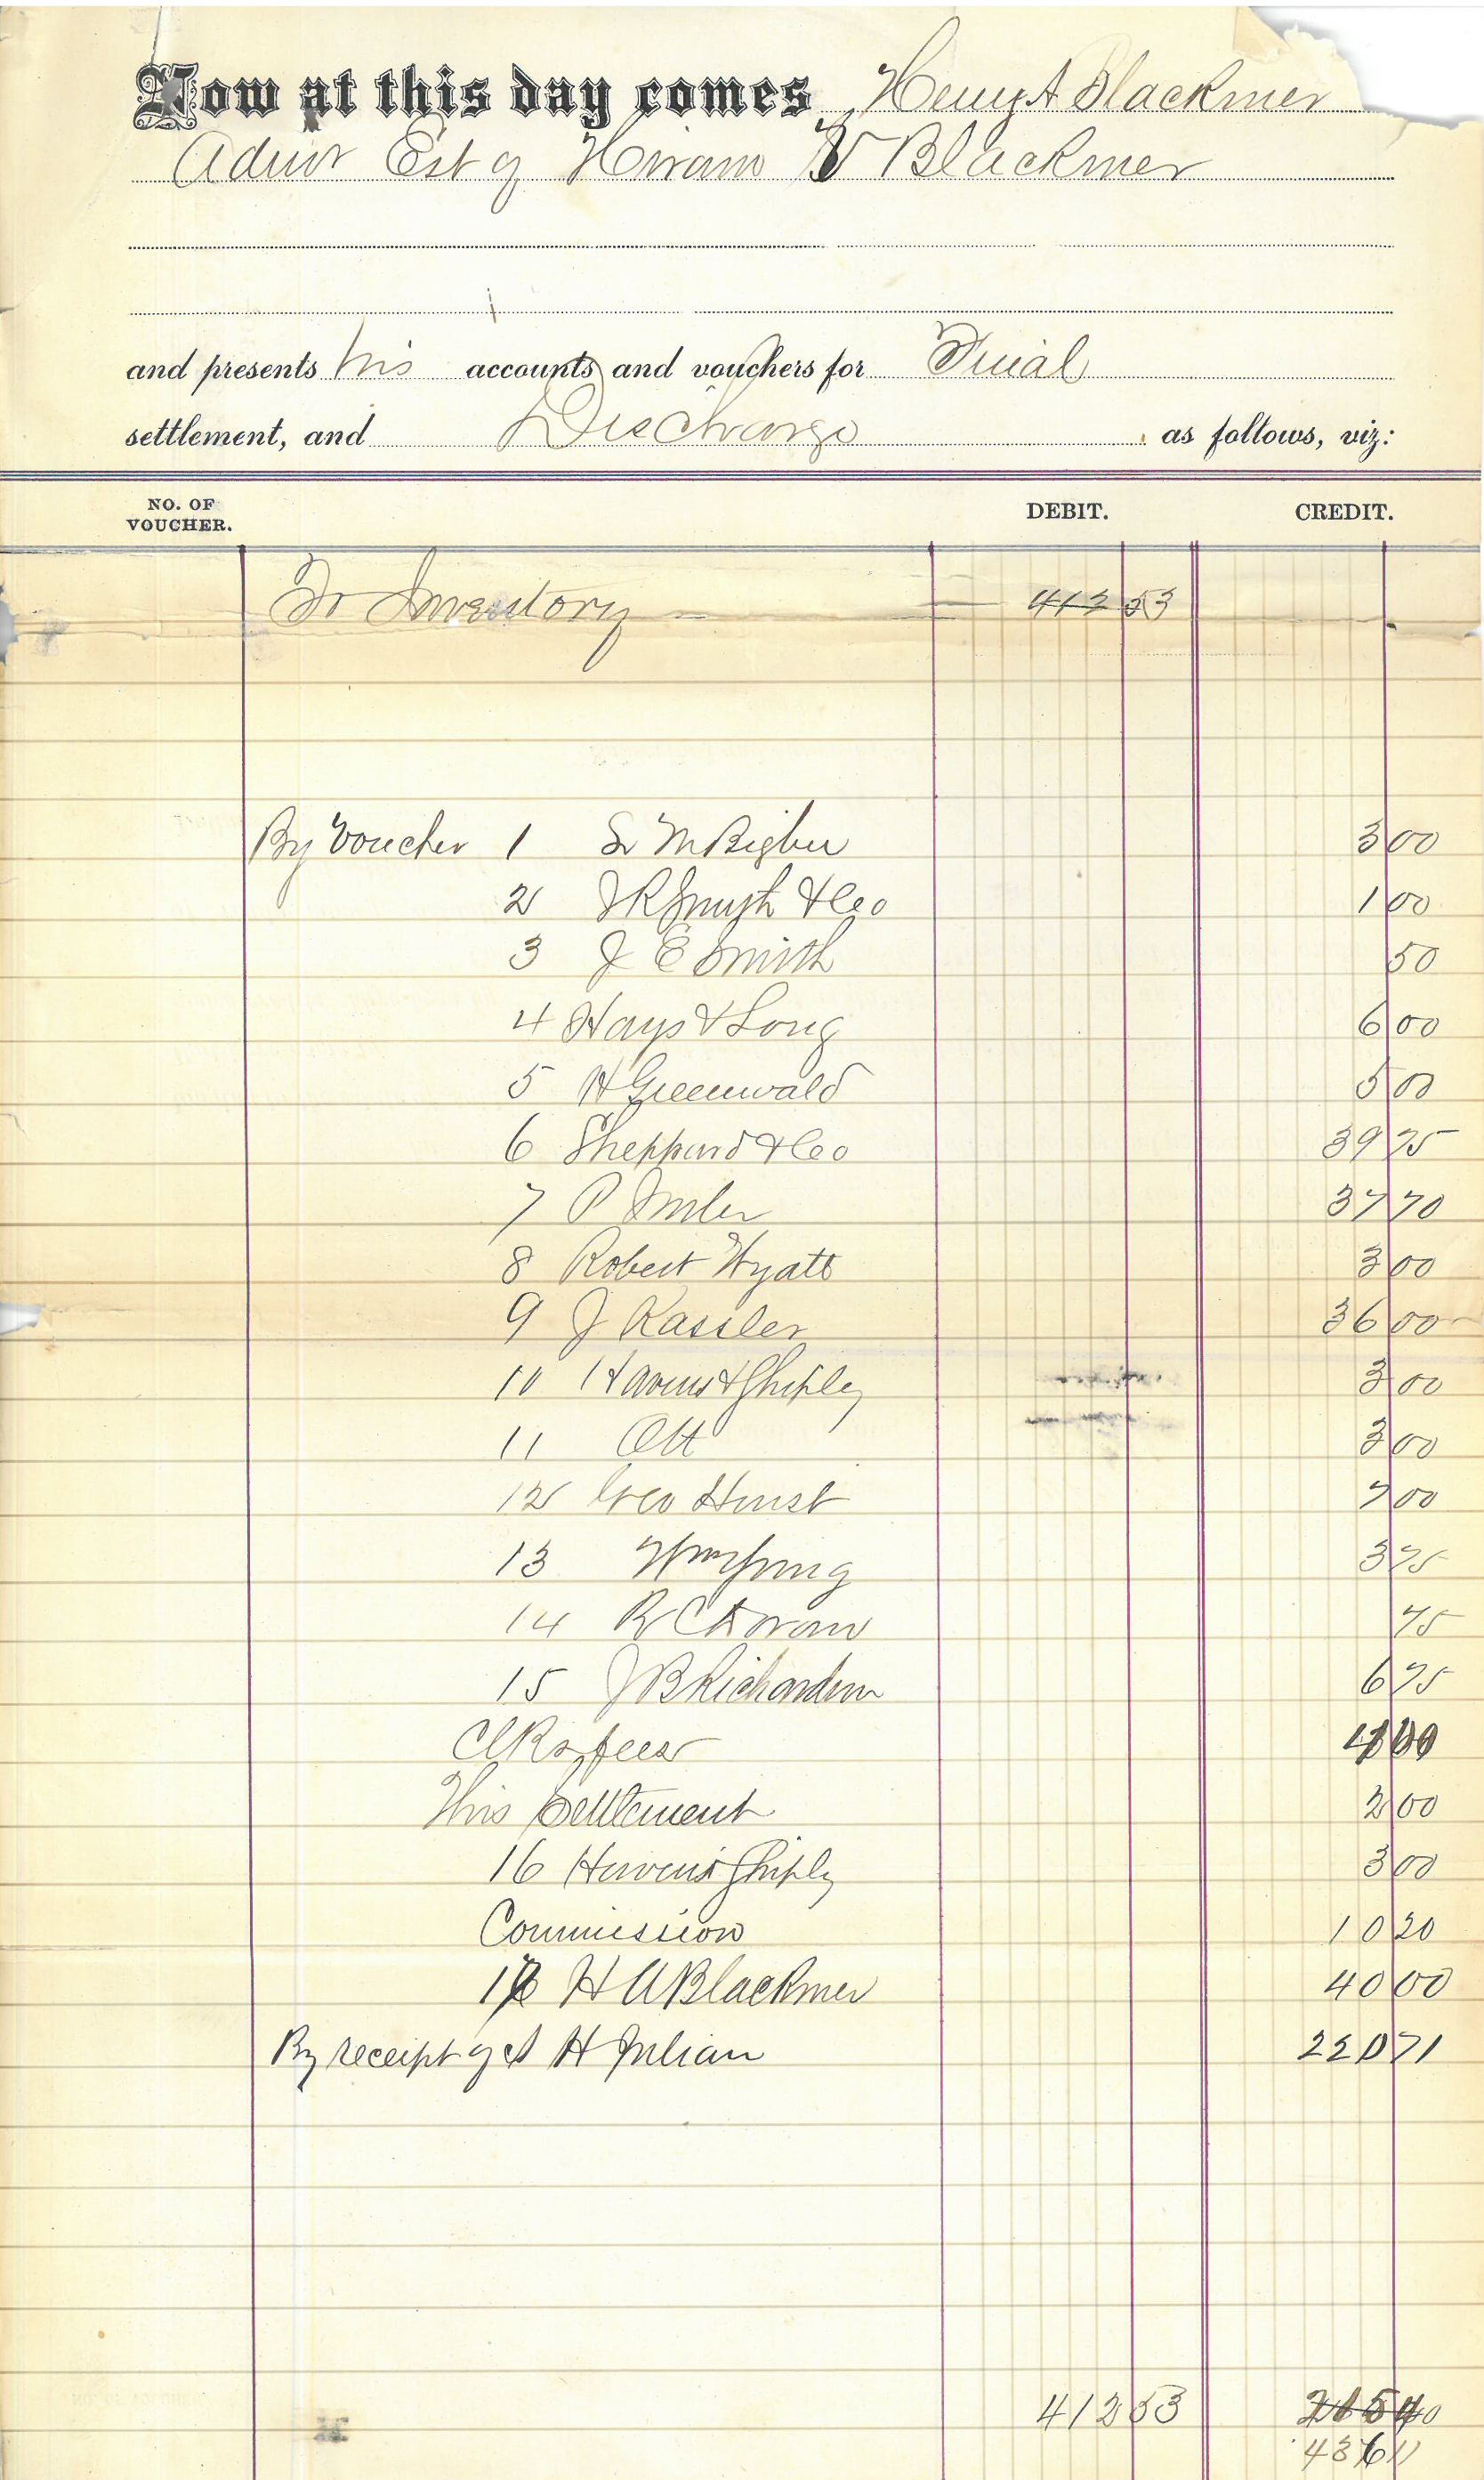 Now at this day comes Henry A Blackmer
Admr Est of Hiram V Blackmer
and presents his accounts and vouchers for Final
settlement, and Discharge as follows, viz:
NO. OF VOUCHER. DEBIT. CREDIT.
To Inventory 412 53
By Voucher 1 3 00
2 J R Smyth & Co 1 00
3 J E Smith 50
4 Hays & Long 6 00
5 H Greenwald 5 00
6 Sheppard & Co 39 75
7 P Imler 37 70
8 Robert Wyatt 3 00
9 J Kassler 36 00
10 Havens & Shiply 3 00
11 Ott 3 00
12 Geo Hurst 7 00
13 Wm Young 3 75
14 R C 75
15 J B Richardson 6 75
Clks fees
This Settlement 2 00
16 Havens Shiply 3 00
Commission 10 20
H A Blackmer 40 00
By receipt of A H Julian 220 71
412 53